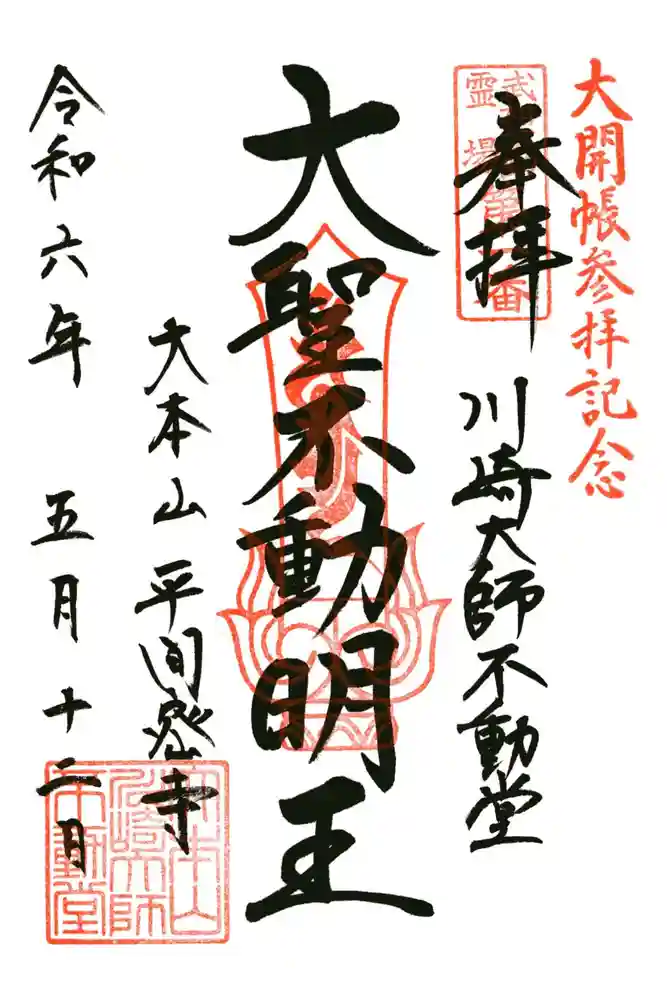 大開帳参拝記念
奉拝
川崎大師不動堂
大聖不動明王
大本山 平間密寺
令和六年 五月十二日
大本山
川崎大師
不動堂